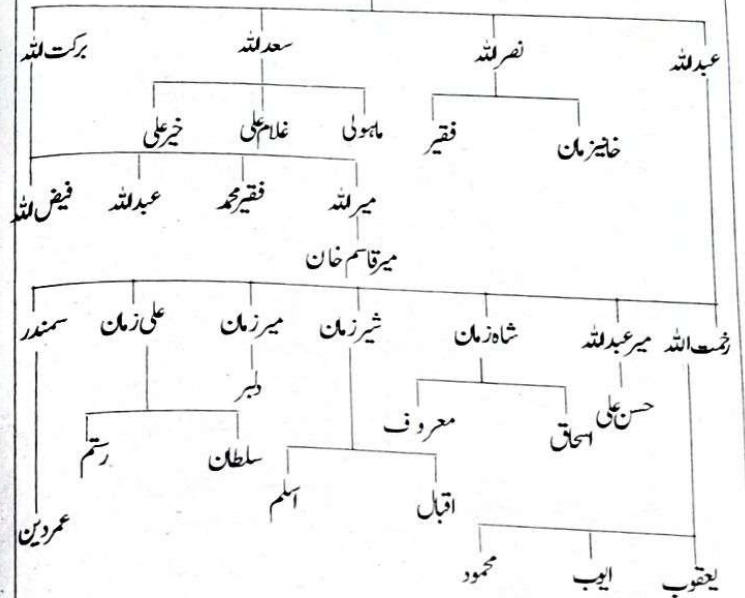 عبداللہ نصراللہ سعداللہ برکت اللہ
خانیزمان فقیر ماہولی غلام علی خیر علی
میراللہ فقیر محمد عبداللہ فیض اللہ
میر قاسم خان
رحمت اللہ میر عبداللہ شاہ زمان شیر زمان میر زمان علی زمان سمندر
حسن علی اسحاق معروف دلبر سلطان رستم
اقبال اسلم عمردین
یعقوب ایوب محمود